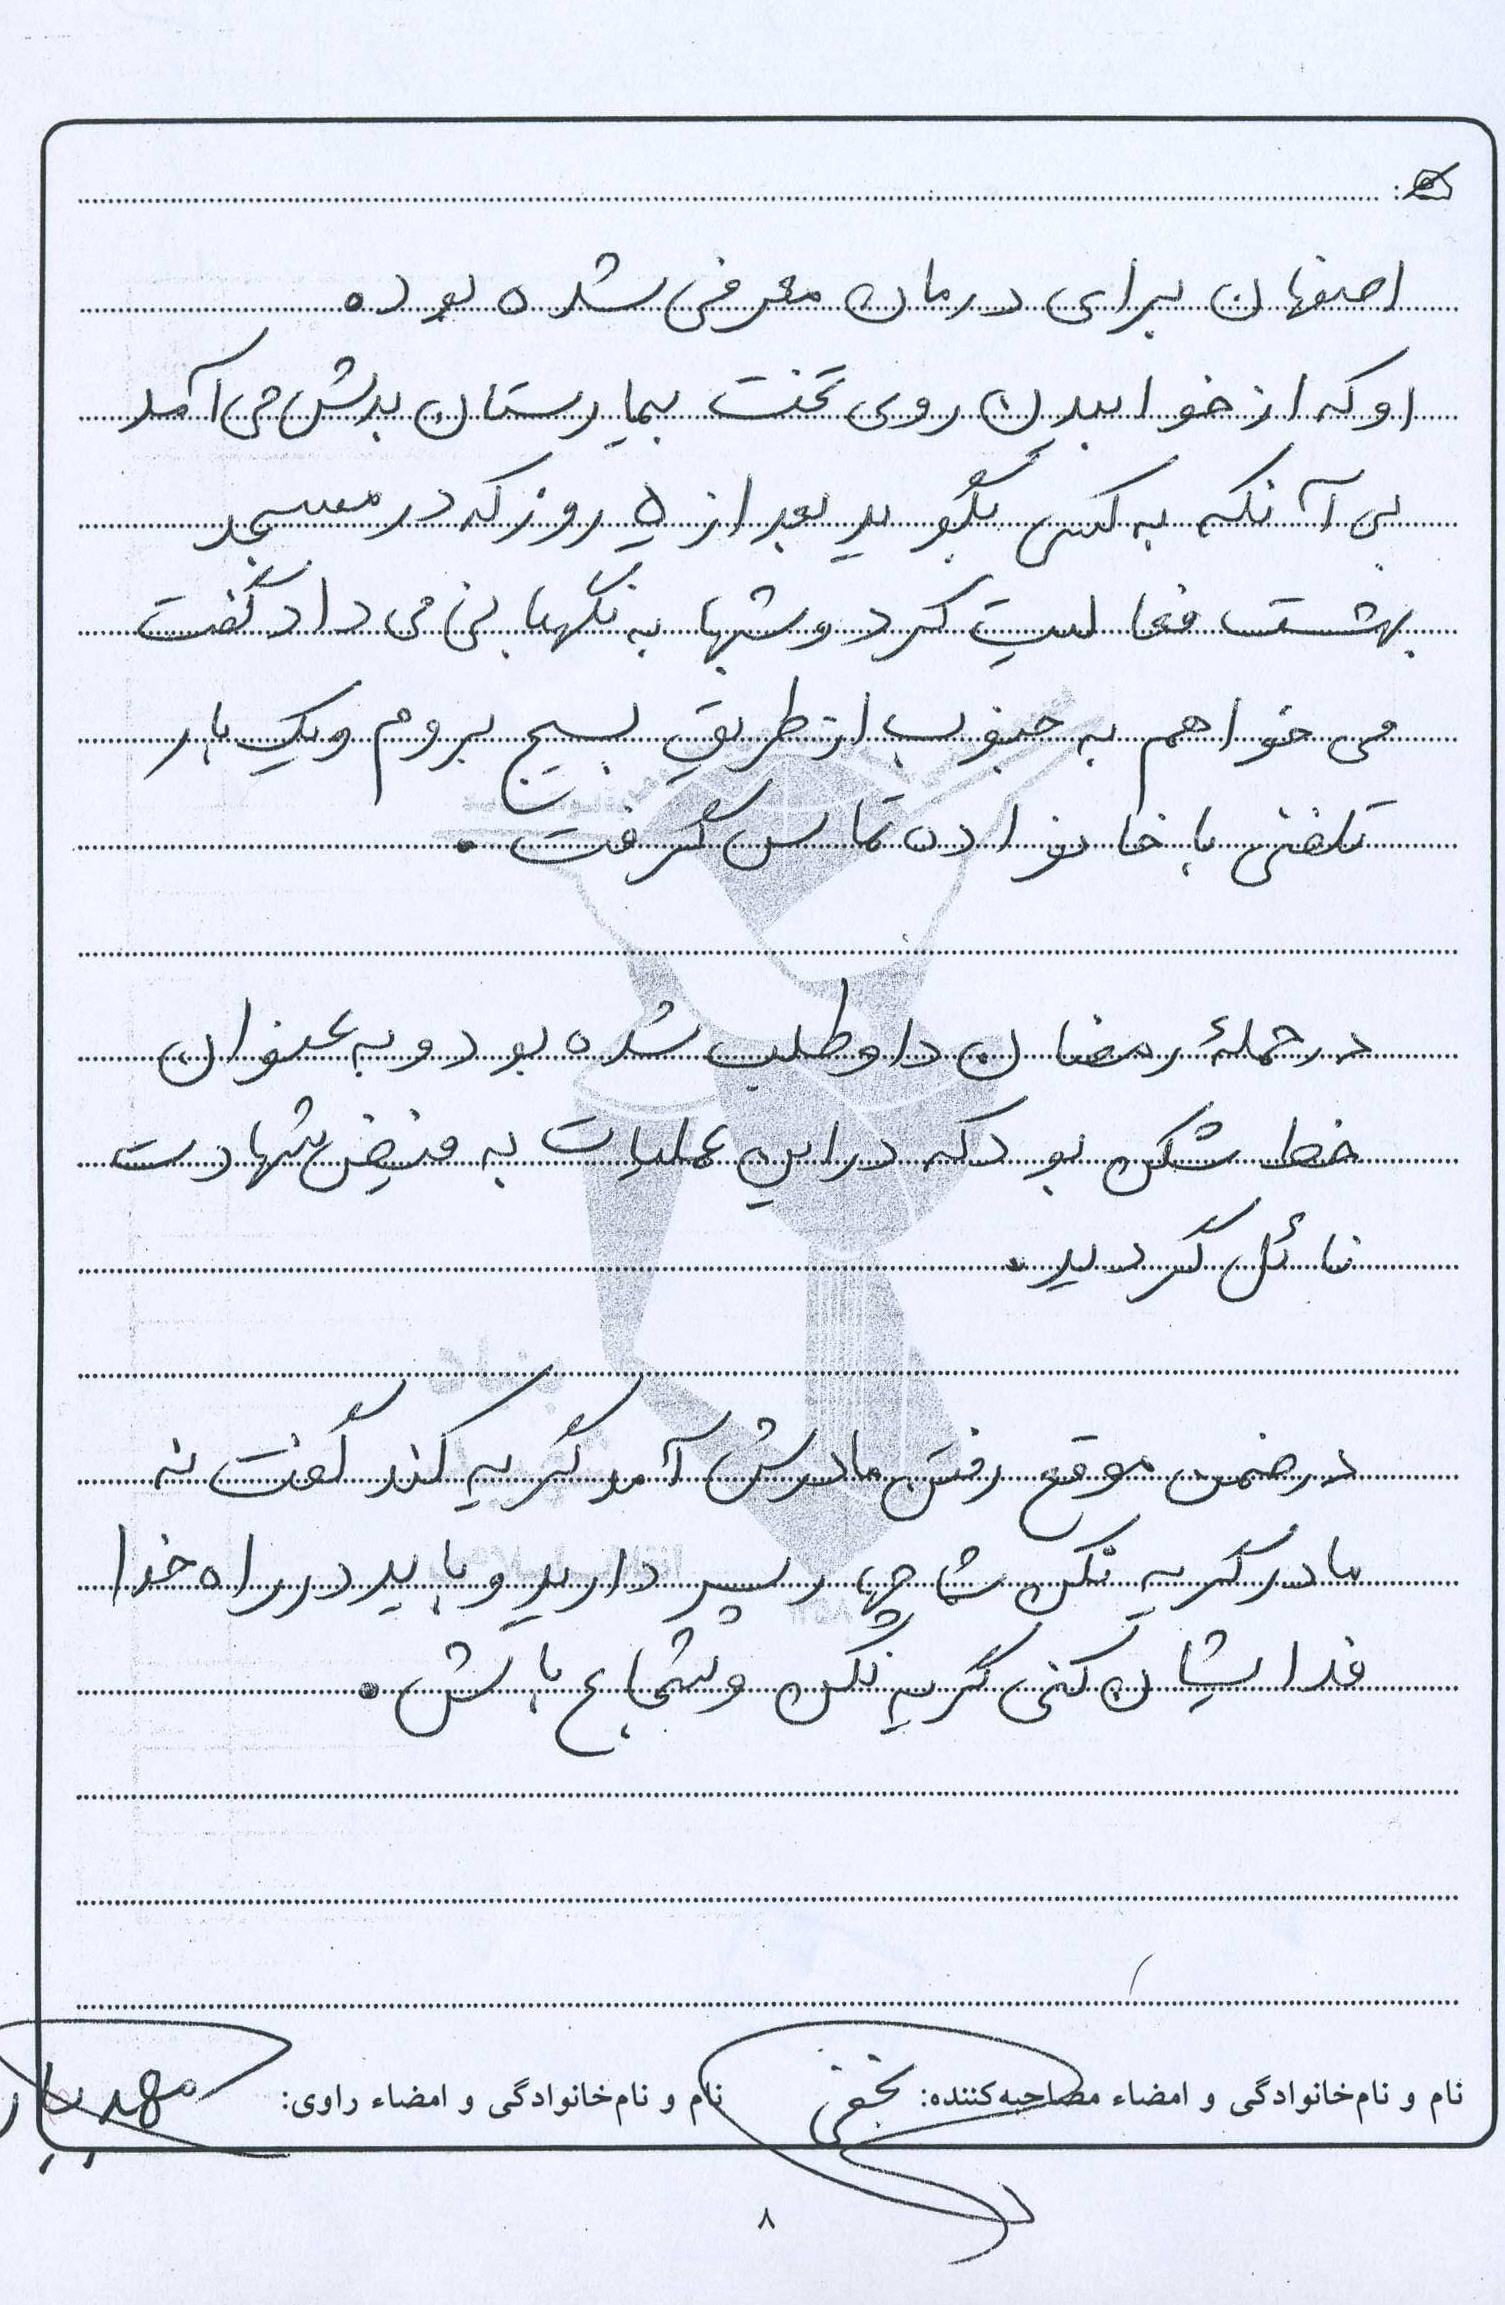 اصفهان برای درمان معرفی شده بوده
او که از خوابیدن روی تخت بیمارستان بدش می آمد
بی آنکه به کسی بگوید بعد از ۵ روز که در مسجد
بهشت فعالیت کرد و شبها به نگهبانی می داد گفت
می خواهم به جنوب از طریق بسیج بروم و یک بار
تلفنی با خانواده تماس گرفت.
در حملهٔ رمضان داوطلب شده بود و به عنوان
خط شکن بود که در این عملیات به فیض شهادت
نائل گردید.
در ضمن موقع رفتن مادرش آمد گریه کند گفت نه
مادر گریه نکن شما چهار پسر دارید و باید در راه خدا
فدایشان کنی گریه نکن و شجاع باش.
نام و نام‌خانوادگی و امضاء مصاحبه‌کننده: نجفی نام و نام‌خانوادگی و امضاء راوی: مهدیار
۸